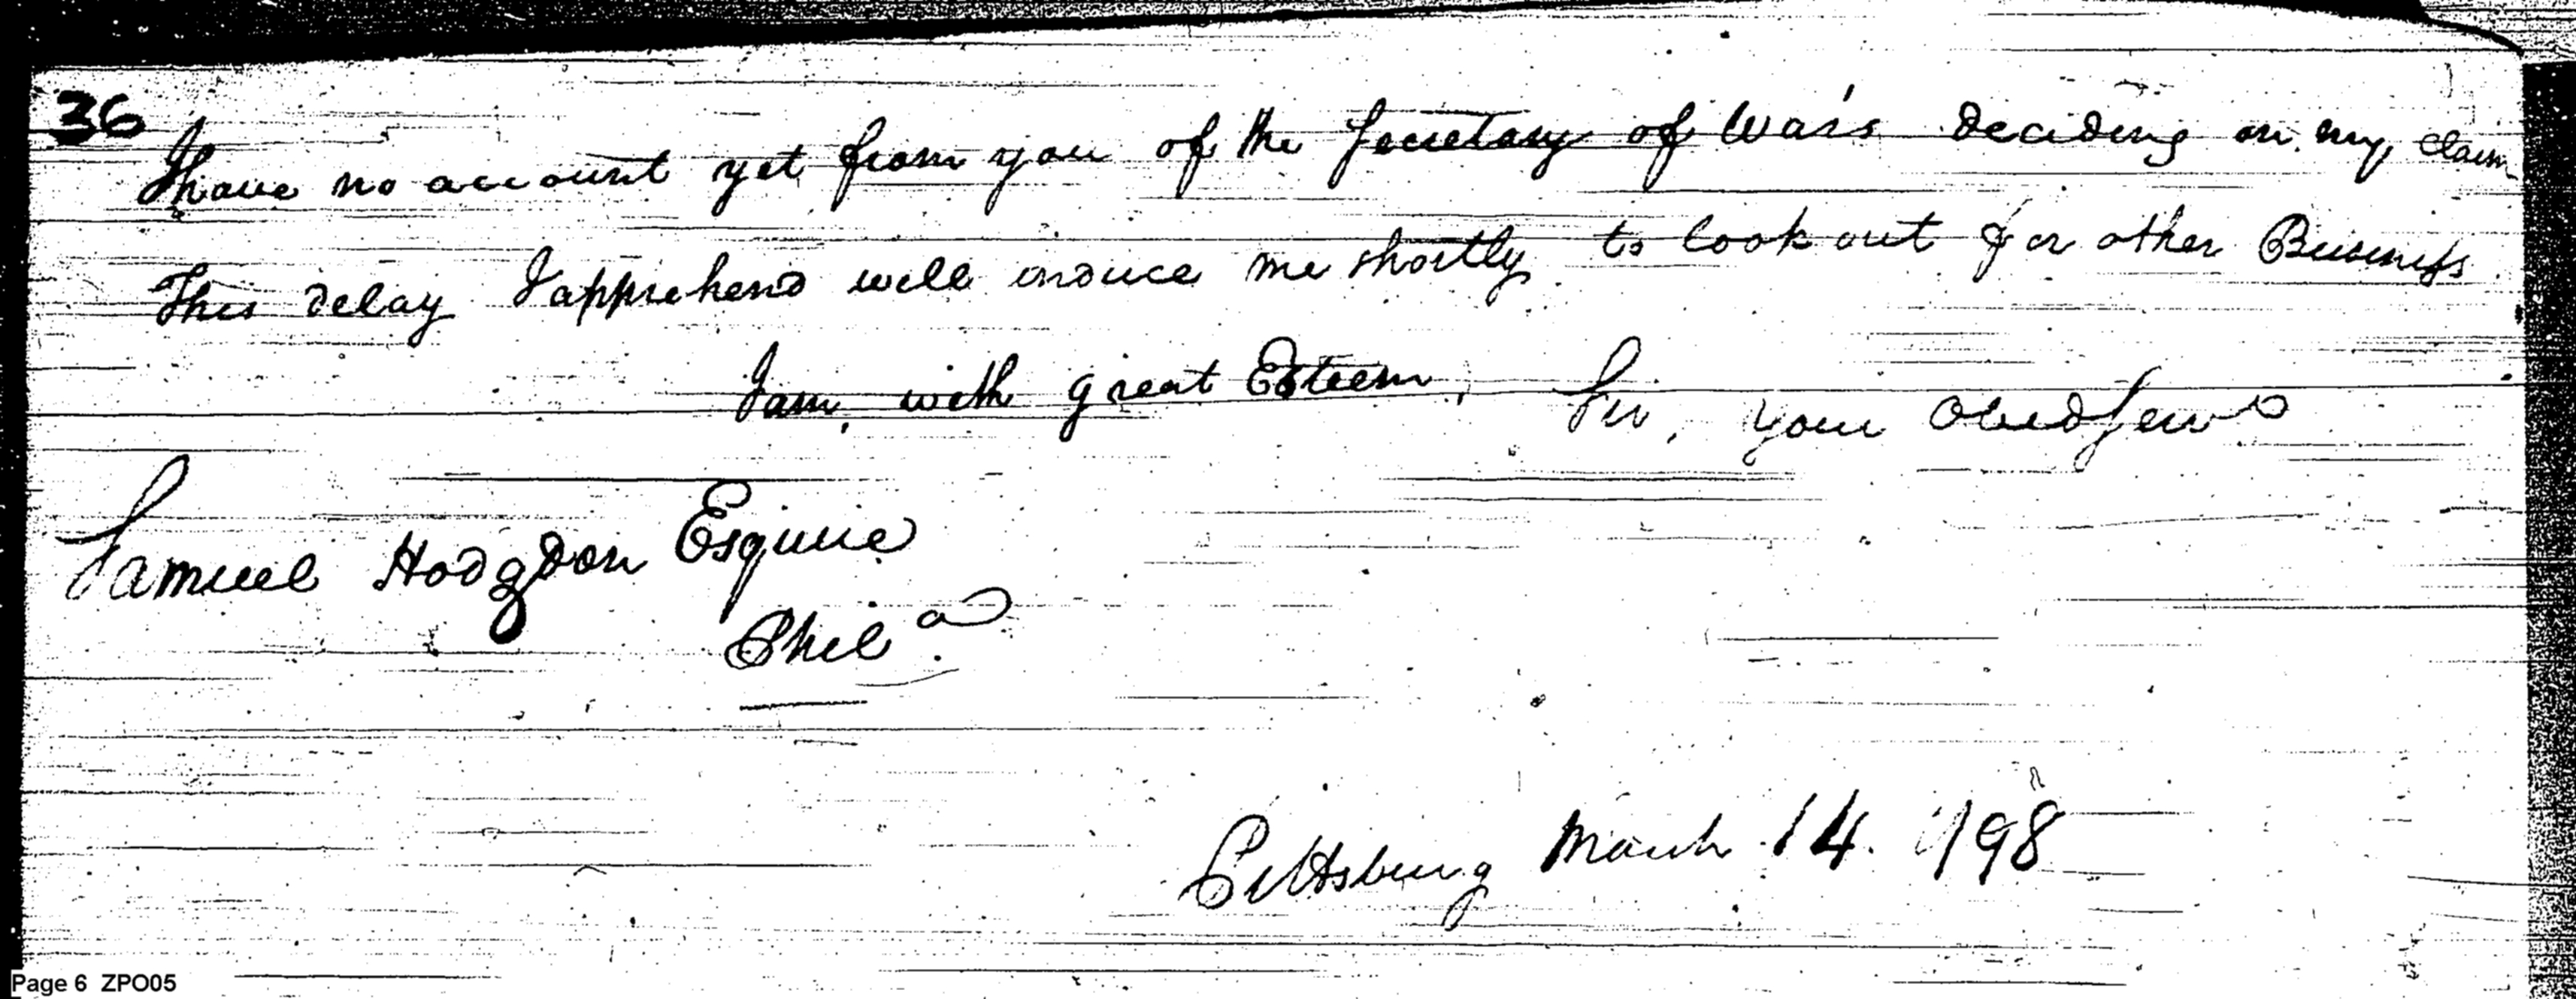 36
I have no account yet from you of the Secretary of War's deciding on my claim
This delay I apprehend will induce me shortly to look out for other Business
I am with great Esteem, Sir, your Obed Serv
Samuel Hodgdon Esquire
Phil a
Pittsburg March 14. 1798
Page 6 ZPO05